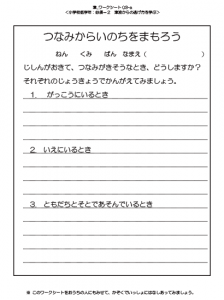 <小学校低学年:自得-2 津波からの逃げ方を学ぶ>
つなみからいのちをまもろう
ねん くみ ばん なまえ( )
じしんがおきて、つなみがきそうなとき、どうしますか?
それぞれのじょうきょうでかんがえてみましょう。
1. がっこうにいるとき
2 いえにいるとき
3 ともだちとそとであそんでいるとき
※ このワークシートをおうちの人にもみせて、かぞくでいっしょにはなしあってみましょう。